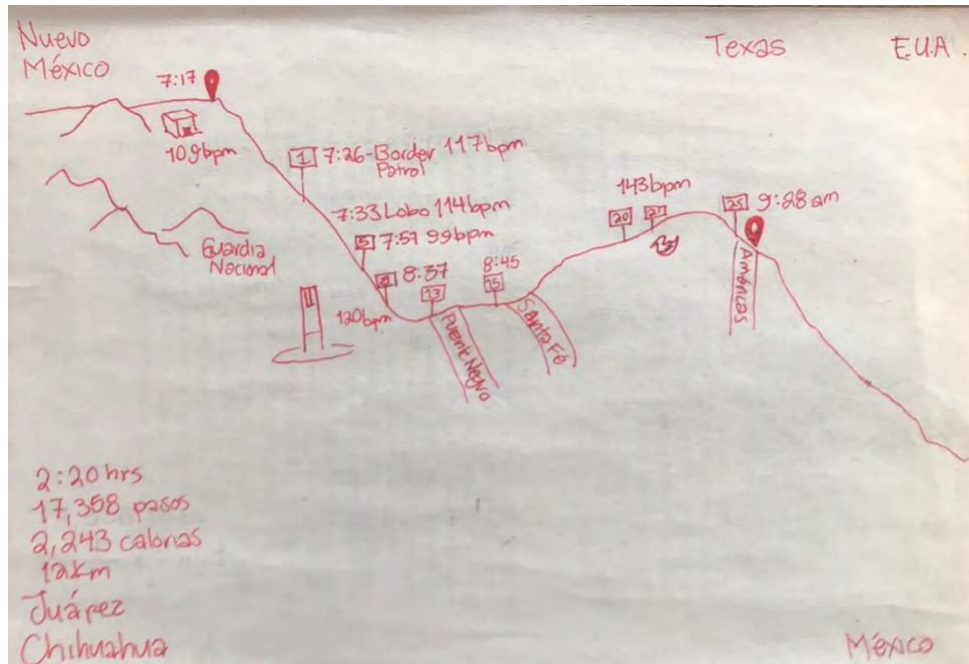 Nuevo
México
Texas
E.U.A.
7:17
109bpm
1
7:26-Border 117bpm
Patrol
7:33 Lobo 114bpm
5
7:51 99bpm
Guardia
Nacional
8
8:37
120bpm
13
8:45
15
Puente Negro
Santa Fé
143bpm
20
21
25
9:28 am
Américas
2:20 hrs
17,358 pasos
2,243 calorias
12km
Juárez
Chihuahua
México